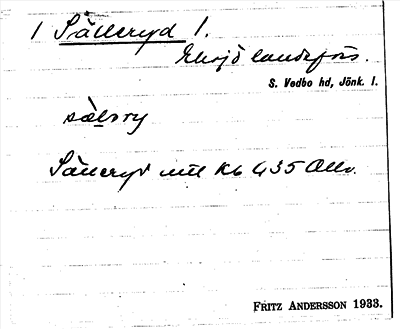 1 Sälleryd 1.
Eksjö landsförs.
S. Vedbo hd, Jönk. l.
sä̀l⁠ɔry
Sälleryd mtl Kb 435 Allm.
FRITZ ANDERSSON 1933.